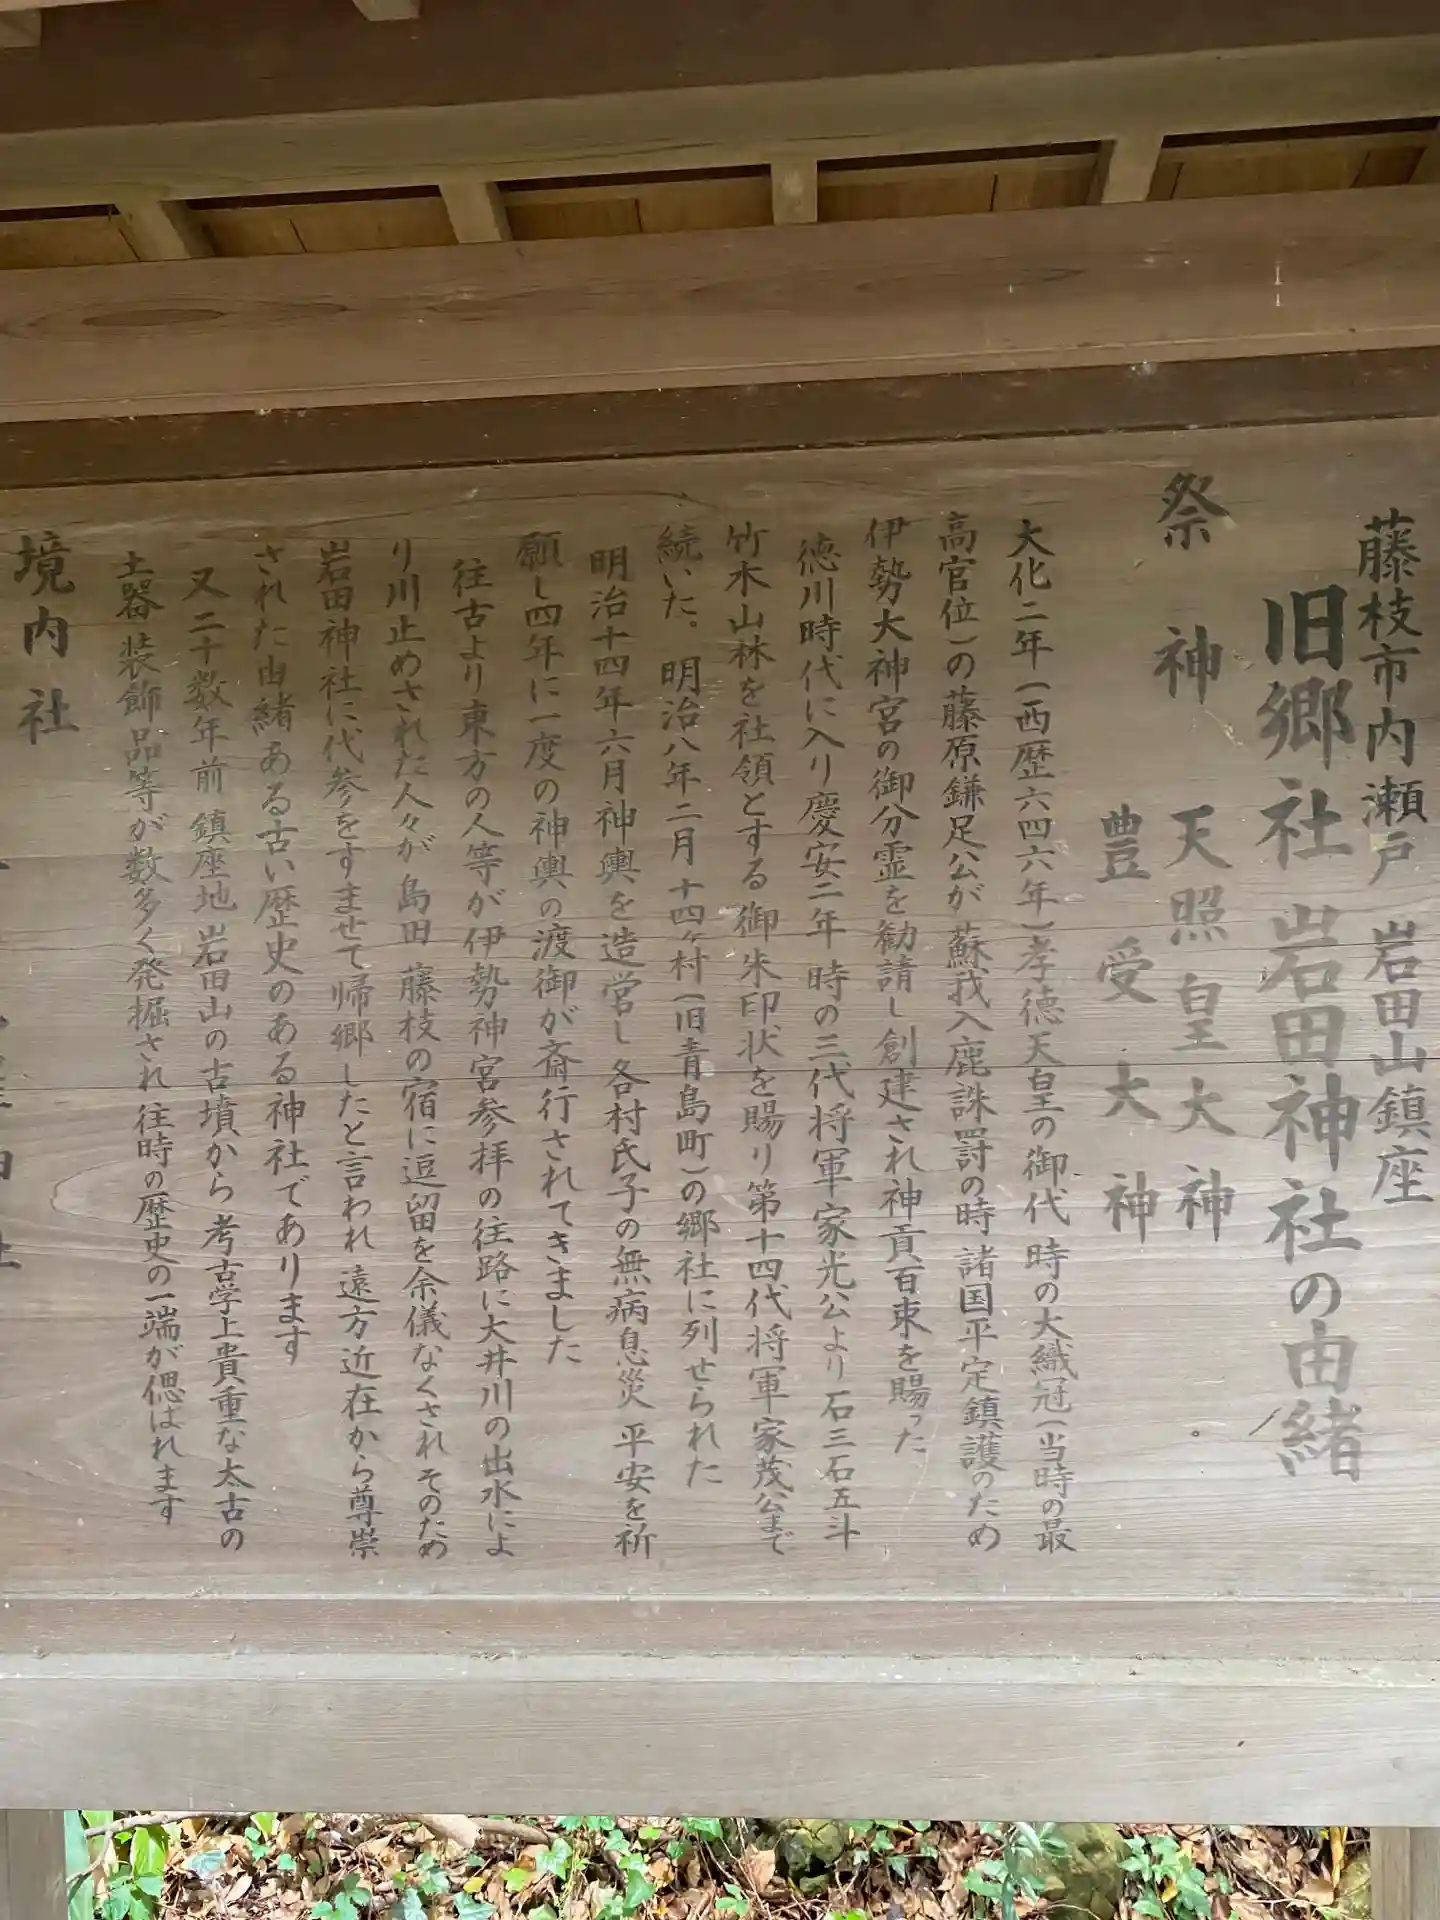 藤枝市内瀬戸 岩田山鎮座
旧郷社 岩田神社の由緒
祭神 天照皇大神
豊受大神
大化二年(西歴六四六年)孝徳天皇の御代 時の大織冠(当時の最
高官位)の藤原鎌足公が 蘇我入鹿誅罸の時 諸国平定鎮護のため
伊勢大神宮の御分霊を勧請し創建され神貢百束を賜った
徳川時代に入り慶安二年 時の三代将軍家光公より石三石五斗
竹木山林を社領とする御朱印状を賜り第十四代将軍家茂公まで
続いた。 明治八年二月十四ヶ村(旧青島町)の郷社に列せられた
明治十四年六月神輿を造営し各村氏子の無病息災 平安を祈
願し四年に一度の神輿の渡御が斎行されてきました
往古より東方の人等が伊勢神宮参拝の往路に大井川の出水によ
り川止めされた人々が島田 藤枝の宿に逗留を余儀なくされそのため
岩田神社に代参をすませて帰郷したと言われ 遠方近在から尊崇
された由緒ある古い歴史のある神社であります
又二十数年前 鎮座地 岩田山の古墳から 考古学上貴重な太古の
土器 装飾品等が数多く発掘され 往時の歴史の一端が偲ばれます
境内社